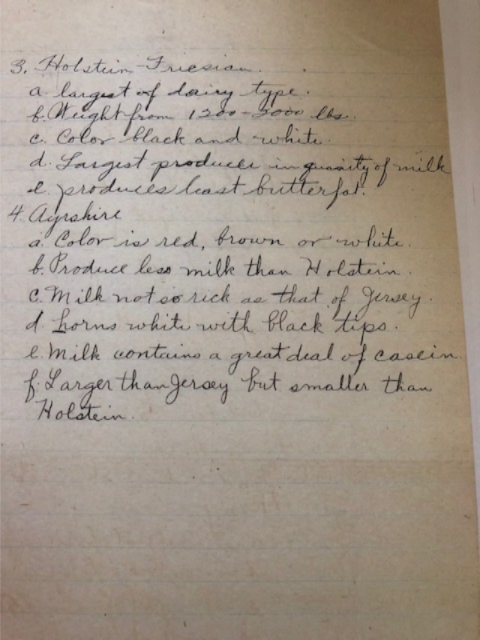 3. Holstein-Friesian.
a. largest of dairy type.
b. Weight from 1200-2000 lbs.
c. Color black and white.
d. Largest producer in quanity of milk
e. produces least butterfat.
4. Ayrshire
a. Color is red, brown or white.
b. Produce less milk than Holstein.
c. Milk not so rich as that of Jersey.
d. horns white with black tips.
e. Milk contains a great deal of casein
f. Larger than Jersey but smaller than
Holstein.